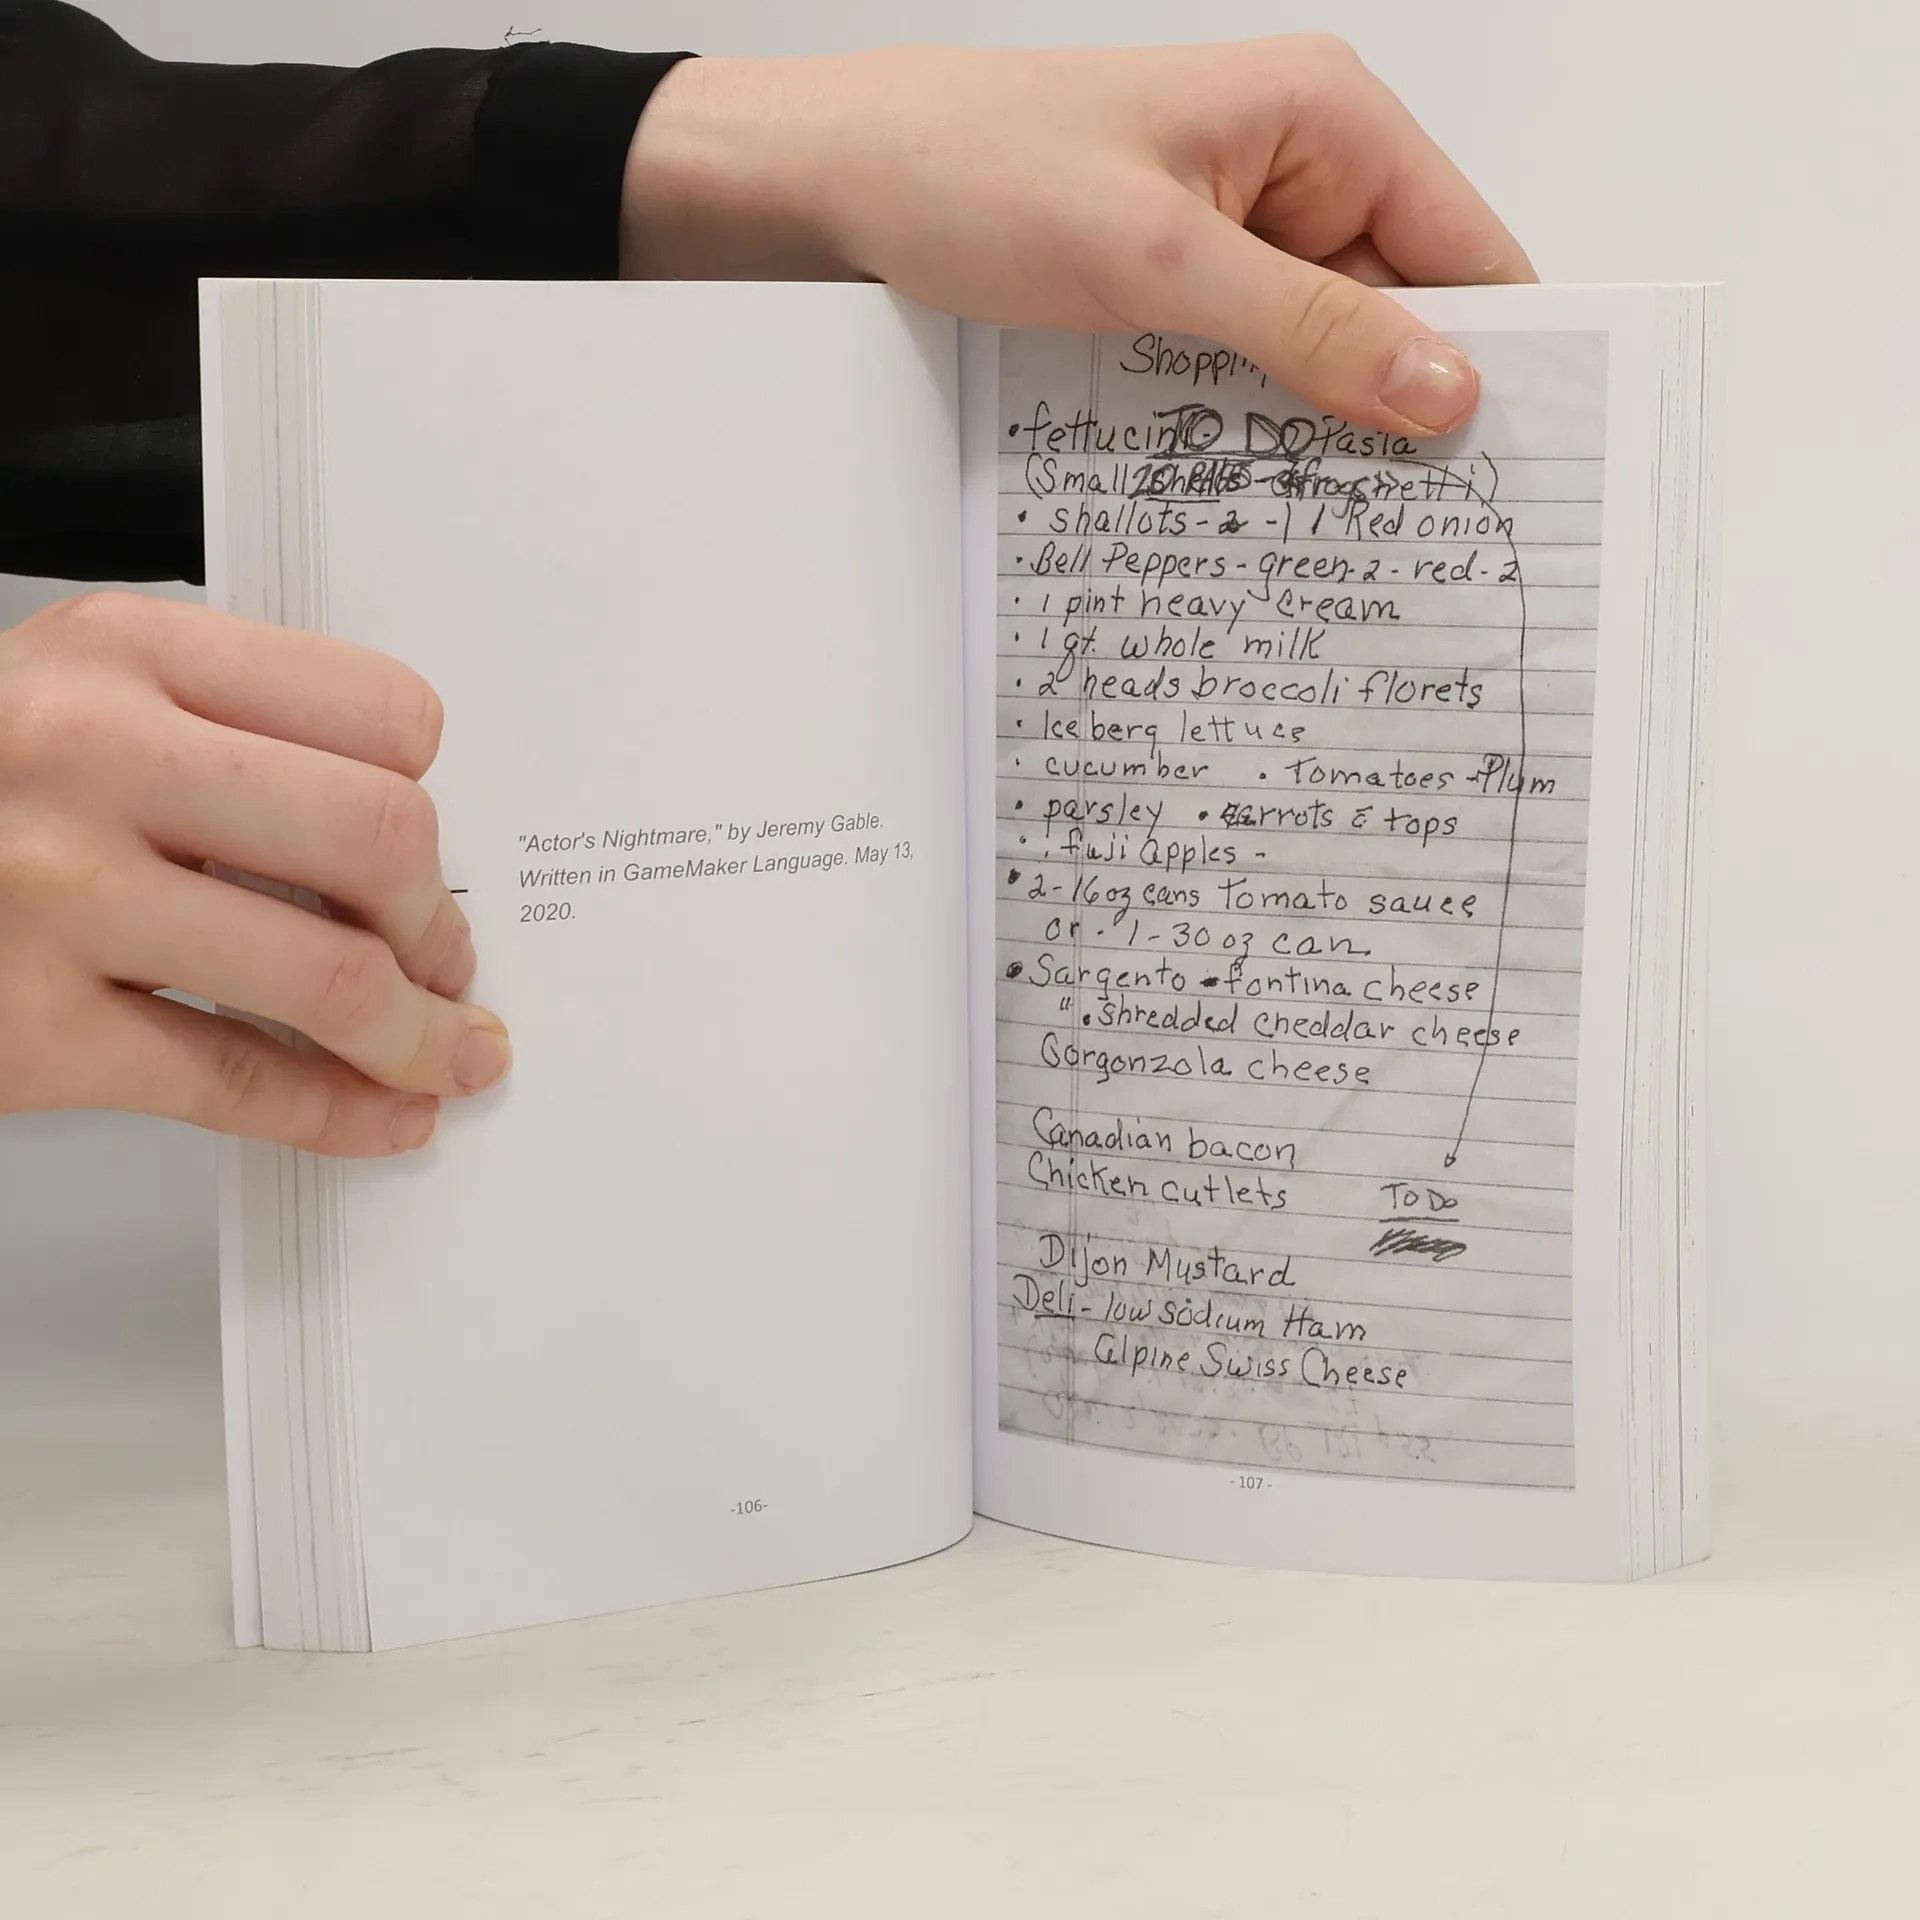 "Actor's Nightmare," by Jeremy Gable.
Written in GameMaker Language. May 13,
2020.
-106-
• TO DO Pasta
(Small
• shallots - 2 - 1 1 Red onion
• Bell Peppers - green - 2 - red - 2
• 1 pint heavy cream
• 1 qt. whole milk
• 2 heads broccoli florets
• Iceberg lettuce
• cucumber • Tomatoes - Plum
• parsley • carrots c̄ tops
• fuji apples -
• 2 - 16 oz cans Tomato sauce
or • 1 - 30 oz can
• Sargento - fontina cheese
" • shredded cheddar cheese
Gorgonzola cheese
Canadian bacon
Chicken cutlets
TO DO
Dijon Mustard
Deli - low sodium Ham
alpine Swiss Cheese
- 107 -